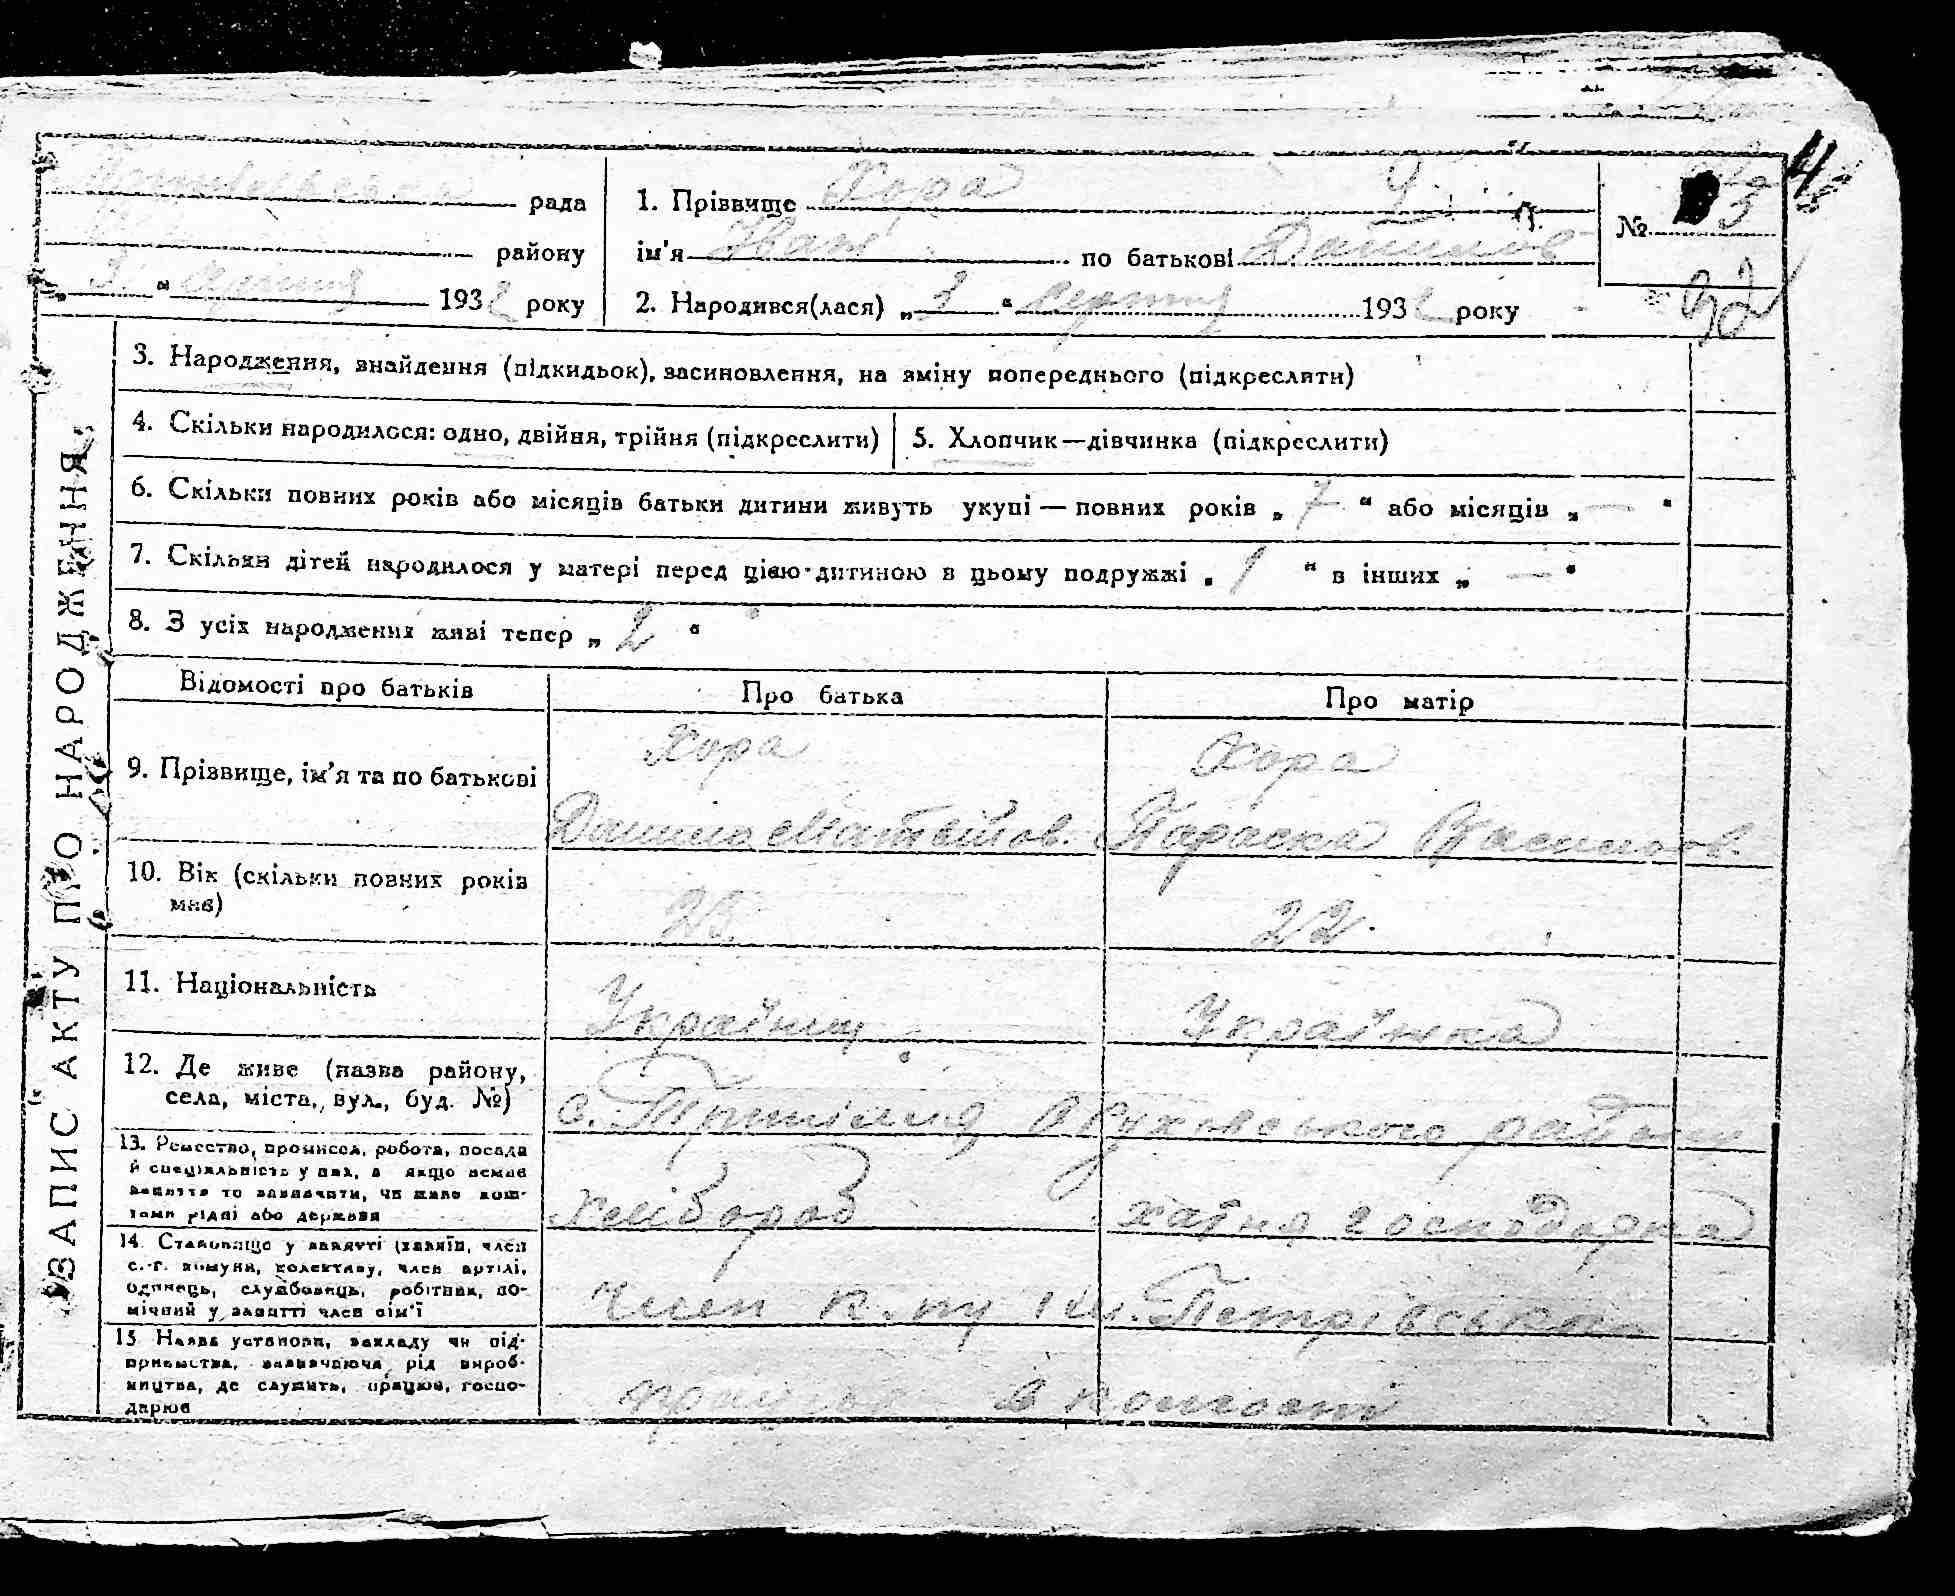 рада
району
„ 3 “ серпня 1932 року
1. Прізвище Хора
ім'я Іван по батькові Данилов
2. Народився(лася) „ 3 “ серпня 1932 року
№ 3
32
ЗАПИС АКТУ ПРО НАРОДЖЕННЯ
3. Народження, знайдення (підкидьок), засиновлення, на зміну попереднього (підкреслити)
4. Скільки народилося: одно, двійня, трійня (підкреслити)
5. Хлопчик—дівчинка (підкреслити)
6. Скільки повних років або місяців батьки дитини живуть укупі — повних років „ 7 “ або місяців „ — “
7. Скільки дітей народилося у матері перед цією дитиною в цьому подружжі „ 1 “ в інших „ — “
8. З усіх народжених живі тепер „ 2 “
Відомості про батьків Про батька Про матір
9. Прізвище, ім'я та по батькові
Хора
Данило Матвійов.
Хора
Параска Василов.
10. Вік (скільки повних років
мав)
22.
11. Національність
Українец
Українка
12. Де живе (назва району,
села, міста, вул., буд. №)
с. району
13. Ремество, промисел, робота, посада
й спеціяльність у них, а якщо немає
заняття то зазначити, чи живе кош-
тами рідні або держави
Хлібороб
хатня господарка
14. Становище у занятті (хазяїн, член
с.-г. комуни, колективу, член артілі,
одинець, службовець, робітник, по-
мічний у занятті член сім'ї
член к-пу ім. Петрівськ
15. Назва установи, закладу чи під-
приємства, зазначаючи рід вироб-
ництва, де служить, працює, госпо-
дарює
працює в колгоспі